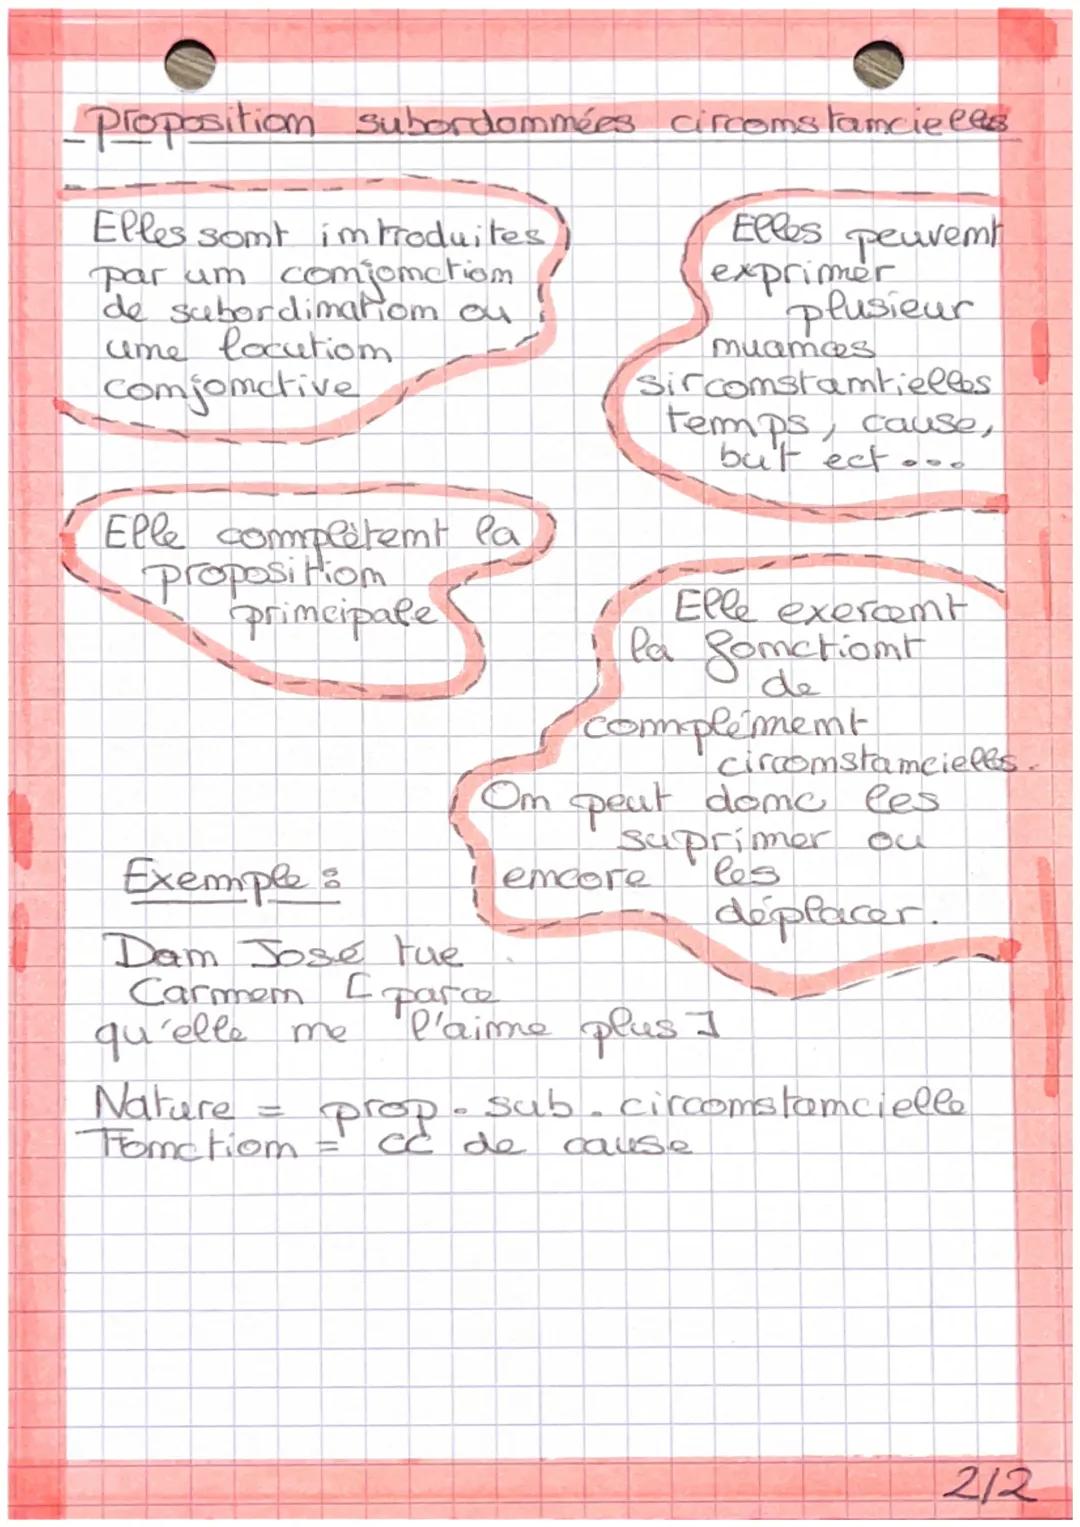 - proposition subordonnées circonstancielles
Elles sont introduites
par un conjonction
de subordination ou
une locution
conjonctive
Elles peuvent
exprimer
plusieur
nuances
sirconstantielles
temps, cause,
but ect...
Elle complètent la
proposition
principale
Elle exercent
la fonctiont
de
complément
circonstancielles.
On peut donc les
suprimer ou
encore les
déplacer.
Exemple :
Dom José tue
Carmen [parce
qu'elle ne l'aime plus]
Nature = prop. sub. circonstancielle
Fonction = CC de cause
2/2